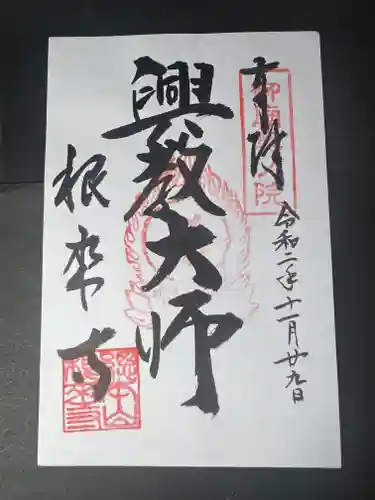 奉拝
令和二年十一月廿九日
興教大師
根来寺